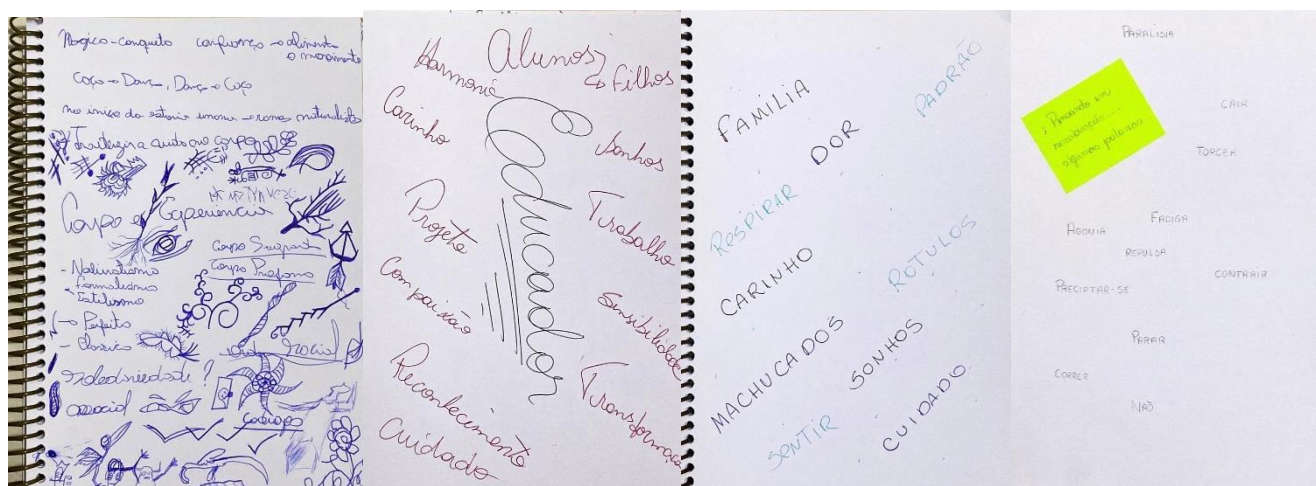 Magico-conqueto confiança → alimenta
o movimento
Caça → Dança, Dança → Caça
no início da
naturalista
Corpo e Experiência
Corpo Sagrado
Corpo Profano
- Naturalismo
Formalismo
Estilismo
→ Perfeito
- Clássico
Social
associal
Alunos
↳ Filhos
Harmonia
Carinho
Sonhos
Educador
Projeto
Trabalho
Compaixão
Sensibilidade
Reconhecimento
Transformação
Cuidado
FAMILIA
PADRÃO
DOR
RESPIRAR
CARINHO
ROTULOS
MACHUCADOS
SONHOS
SENTIR
CUIDADO
PARALISIA
; Pensando em
movimentação...
algumas palavras
CAIR
TORCER
FADIGA
AGONIA
REPULSA
CONTRAIR
PRECIPTAR-SE
PARAR
CORRER
NÃO